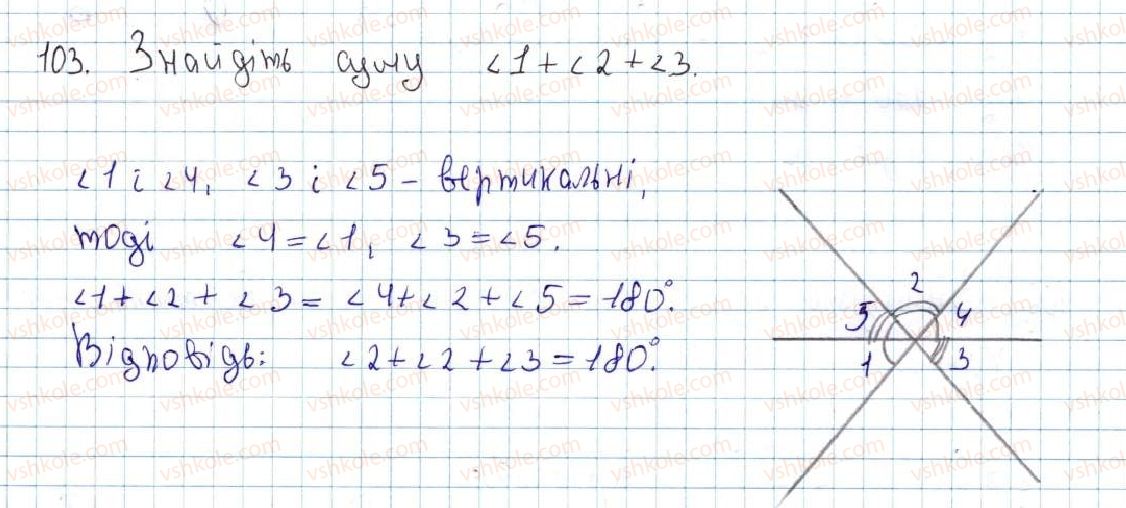 103. Знайдіть суму ∠1+∠2+∠3.
∠1 і ∠4, ∠3 і ∠5 – вертикальні,
тоді ∠4=∠1, ∠3=∠5.
∠1+∠2+∠3=∠4+∠2+∠5=180°.
Відповідь: ∠2+∠2+∠3=180°.
2
5 4
1 3
vshkole.com